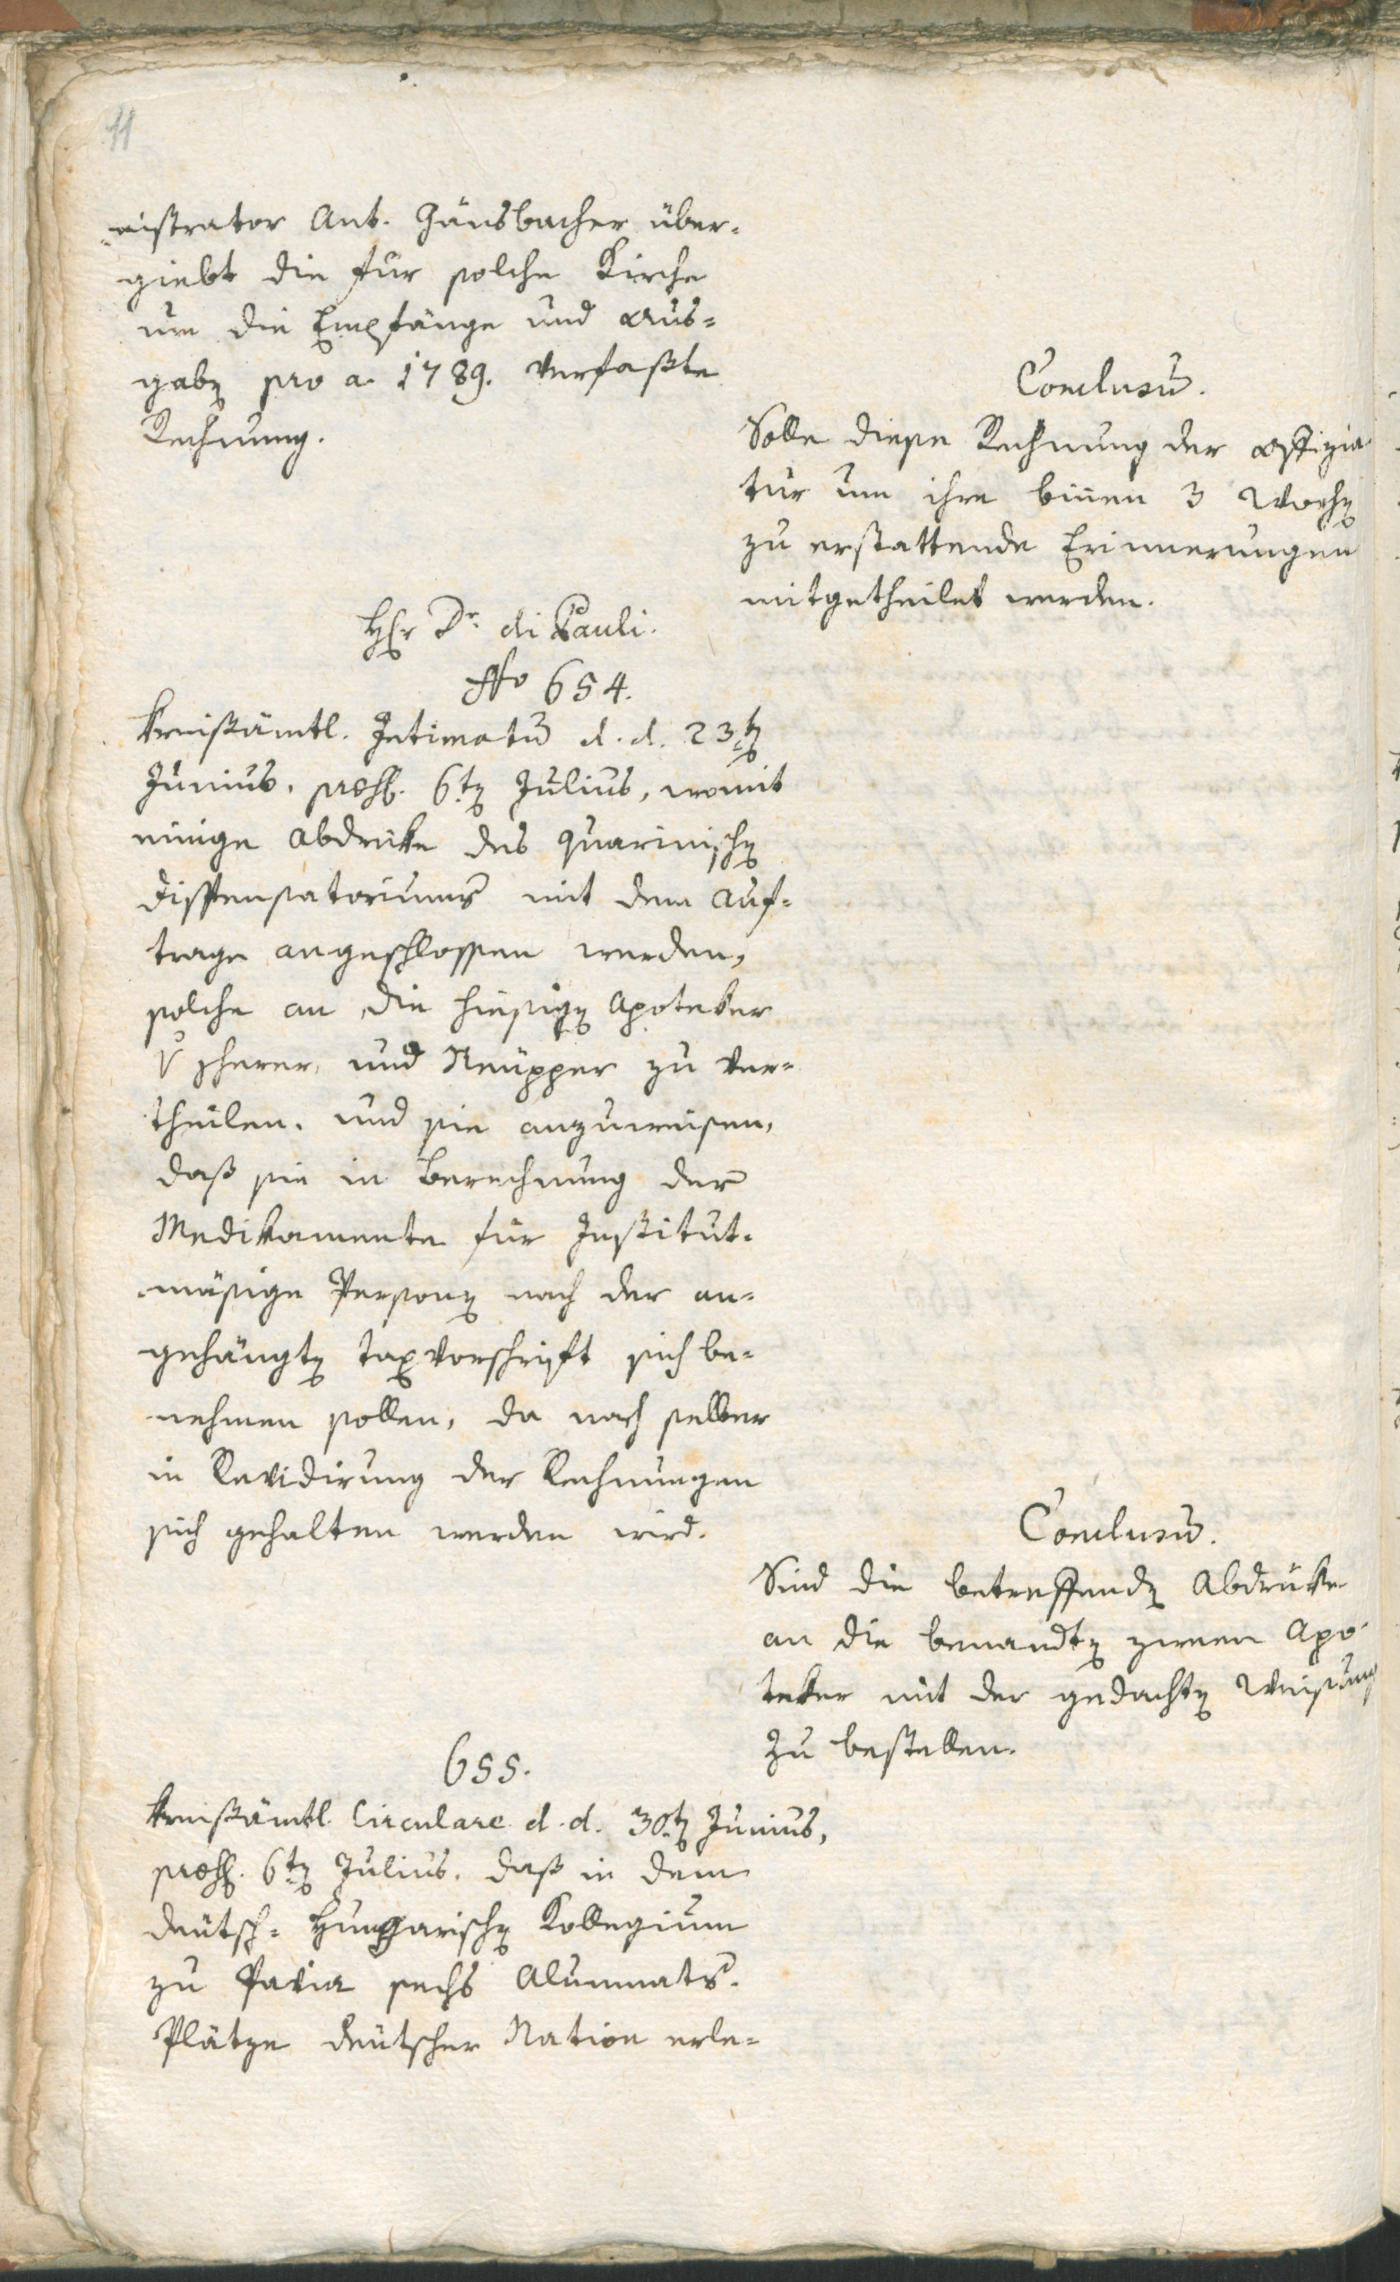 11
nistrator Ant. Gänsbacher über-
giebt die für solche Kirche
um die Empfänge und Aus-
gaben pro a. 1789. verfaßte
Rechnung.
Conclusum.
Solle diese Rechnung der Offizia-
tur um ihre binnen 3 Wochen
zu erstattende Erinnerungen
mitgetheilet werden.
Hr Dr. di Pauli.
No 654.
Kreisämtl. Intimatum d. d. 23ten
Junius, præs. 6ten Julius, womit
einige Abdrücke des Quarinischen
Dispensatoriums mit dem Auf-
trage angeschlossen werden,
solche an die hiesigen Apoteker
und zu ver-
theilen, und sie anzuweisen,
daß sie in Berechnung der
Medikamente für Institut-
mäsige Personen nach der an-
gehängten Taxvorschrift sich be-
nehmen sollen, da nach selber
in Revidirung der Rechnungen
sich gehalten werden wird.
Conclusum.
Sind die betreffenden Abdrücke
an die benandten zween Apo-
teker mit der gedachten Weisung
zu bestellen.
655.
Kreisämtl. Circulare d. d. 30ten Junius,
præs. 6ten Julius, daß in dem
deütsch-Hungarischen Kollegium
zu Pavia sechs Alumnats-
Plätze deütscher Nation erle-